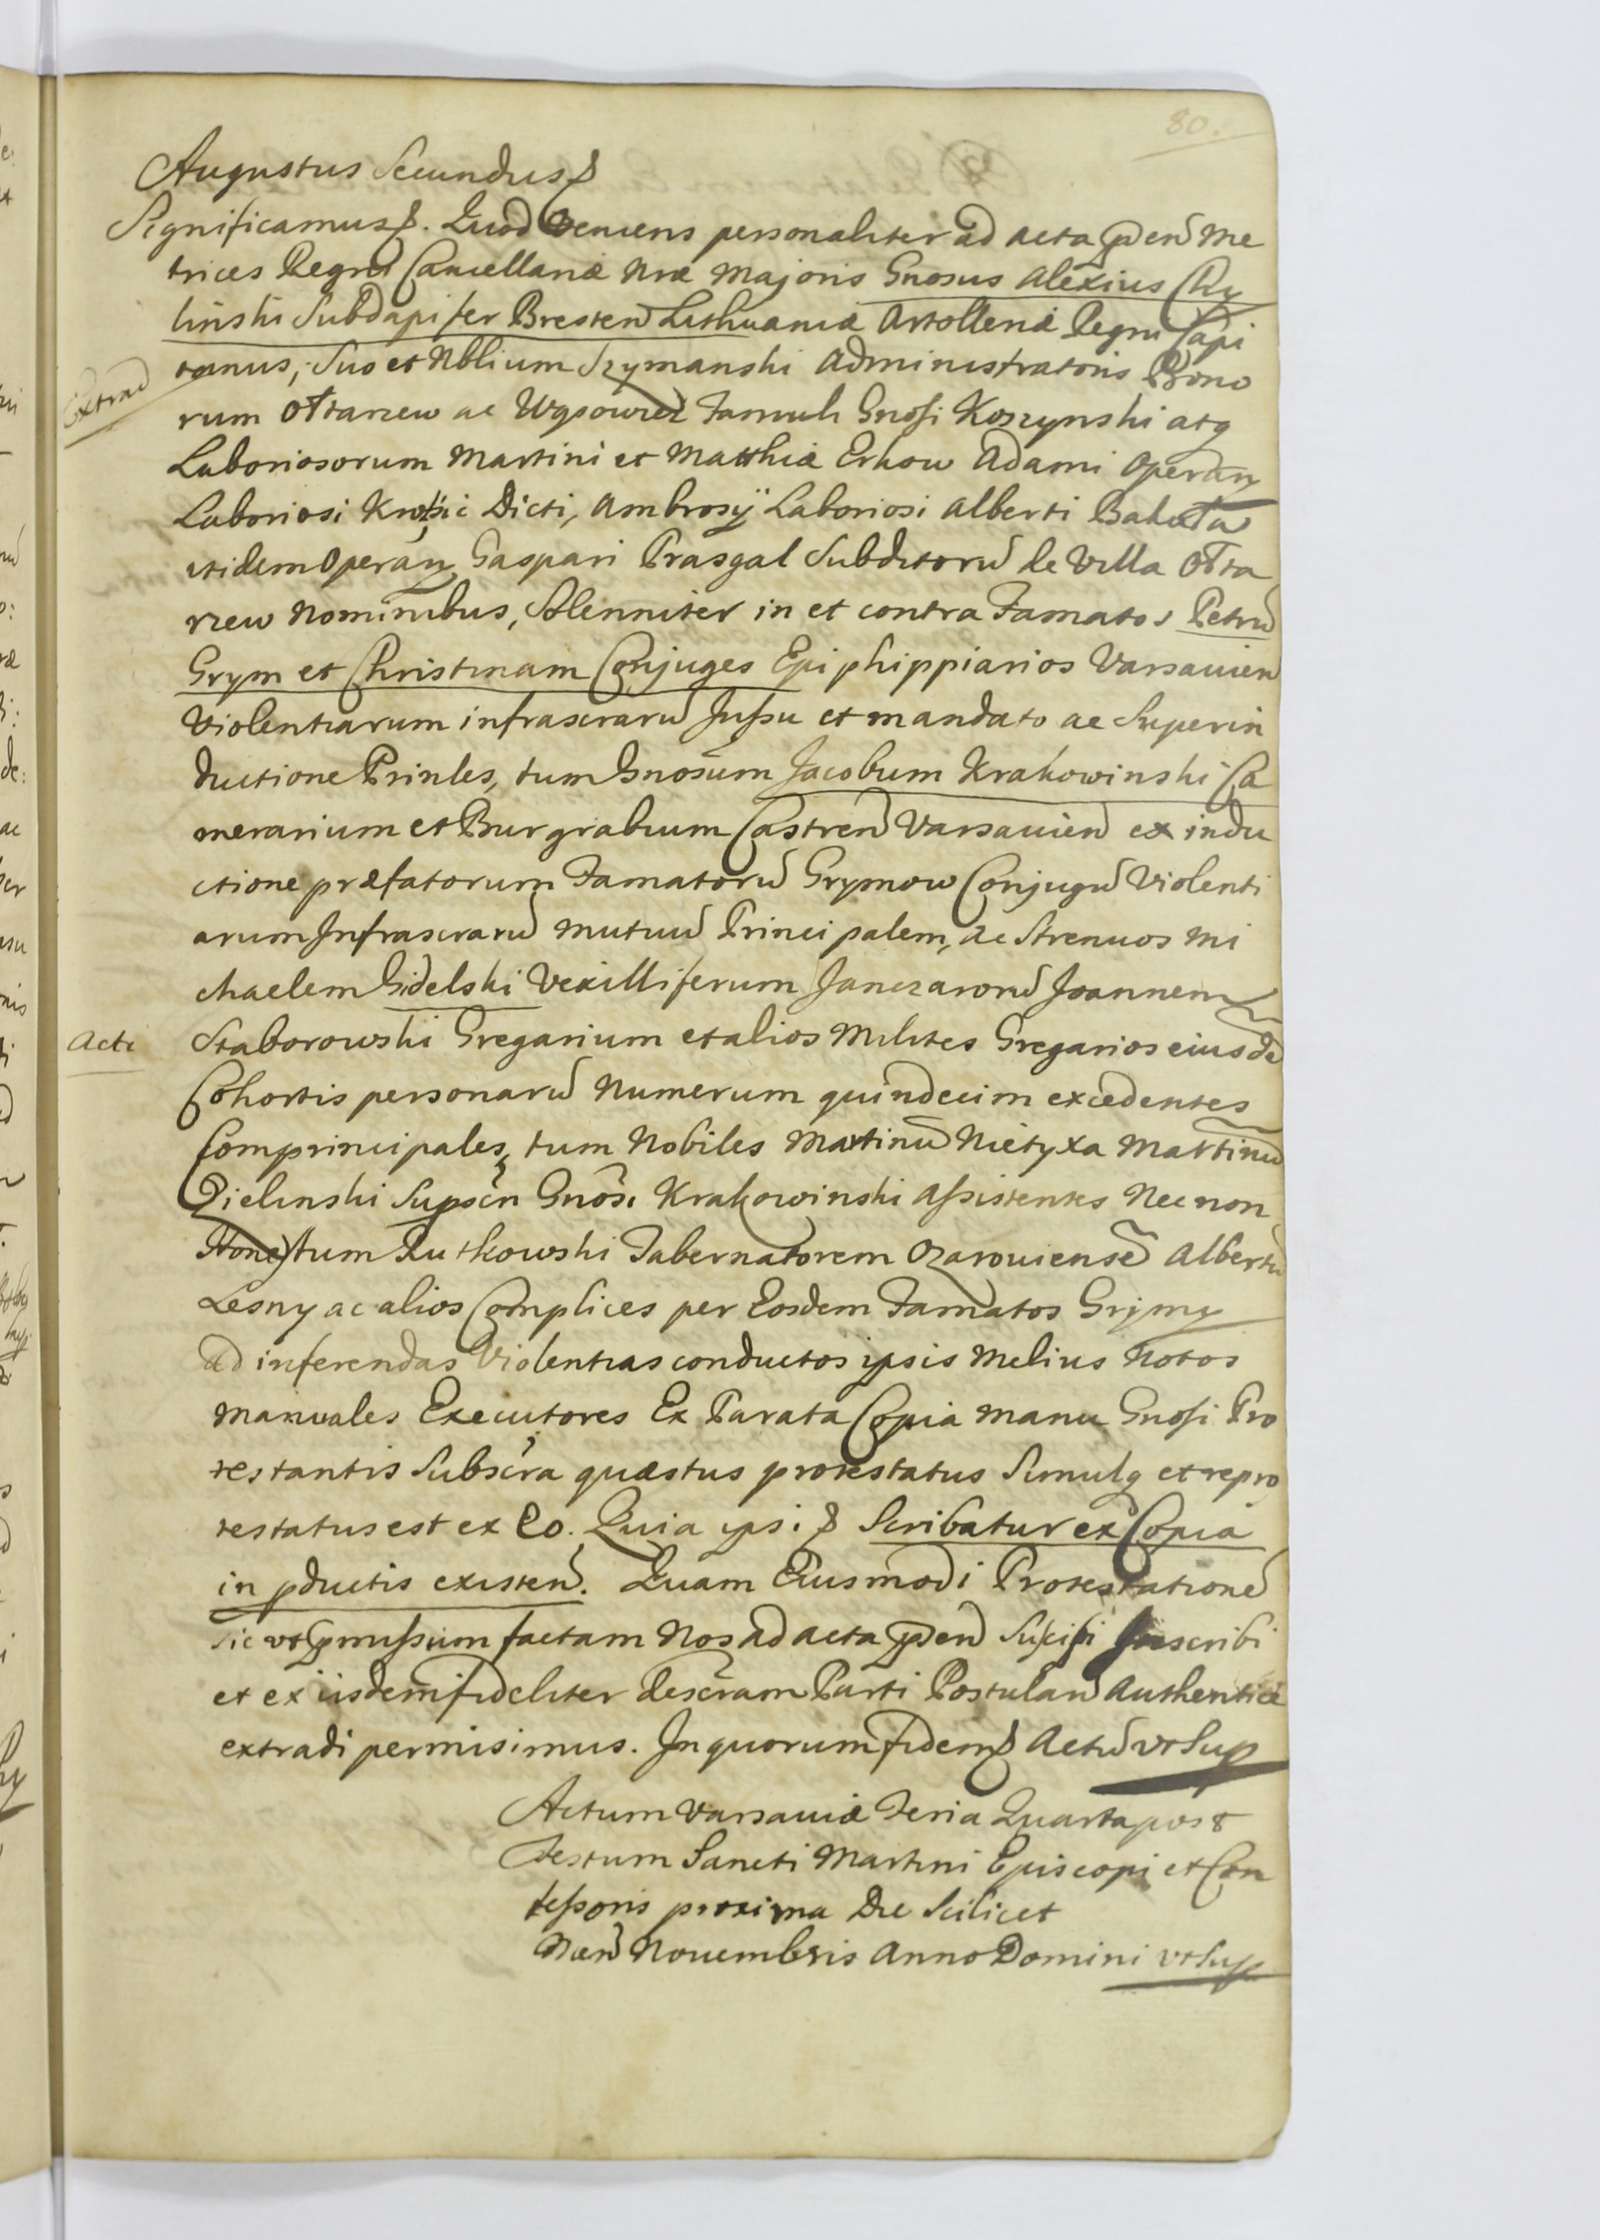 80.
Augustus Secundus
Significamus. Quod veniens personaliter ad acta pnden Me
trices Regni Cancellariæ Nræ Majoris Gnosus Alexius Chy
linski Subdapifer Bresten Lithuaniæ Artolleriæ Regni Capi
Extrad
taneus, Suo et Nblium Szymanski Administratoris Bono
rum Ołtarzew ac Wąsowicz Famuli Gnosi Koszynski atq
Laboriosorum Martini et Matthiæ Erkow Adami Operary
Laboriosi Dicti, Ambrosÿ Laboriosi Alberti Bakuła
itidem Operary Gaspari Prasgal Subditorū de Villa Ołta
rzew Nominibus, Solenniter in et contra Famatos Petrū
Grym et Christinam Conjuges Epiphippiarios Varsavien
Violentiarum infrascrarū Jussu et mandato ac Superin
ductione Prinles, tum Gnosum Jacobum Krakowinski Ca
merarium et Burgrabium Castren Varsavien ex indu
ctione præfatorum Famatorū Grymow Conjugū Violenti
arum Infrascrarū mutuū Principalem, ac Strenuos Mi
chaelem Gidelski Vexilliferum Janczarorū Joannem
Acti
Staborowski Gregarium et alios Milites Gregarios eiusdē
Cohortis personarū Numerum quindecim excedentes
Comprincipales, tum Nobiles Martinū Nietyxa Martinū
Zielinski Supscn Gnosi Krakowinski Assistentes Nec non
Honestum Rutkowski Tabernatorem Ozaroviensē Albertū
Lesny ac alios Complices per Eosdem Famatos Grymy
ad inferendas Violentias conductos ipsis Melius Notos
Manuales Executores Ex Parata Copia manu Gnosi Pro
testantis Subscra quæstus protestatus Simulq et repro
testatus est ex Eo. Quia ipsi Scribatur ex Copia
in pductis existen. Quam Eiusmodi Protestationē
sic vt pmissum factam Nos ad acta pnden Suscipi Inscribi
et ex iisdem fideliter descram Parti Postulan Authentice
extradi permisimus. In quorum fidem Actū vt Sup
Actum Varsaviæ Feria Quarta post
Festum Sancti Martini Episcopi et Con
fessoris proxima Die Scilicet
Mēn Novembris Anno Domini vt Sup